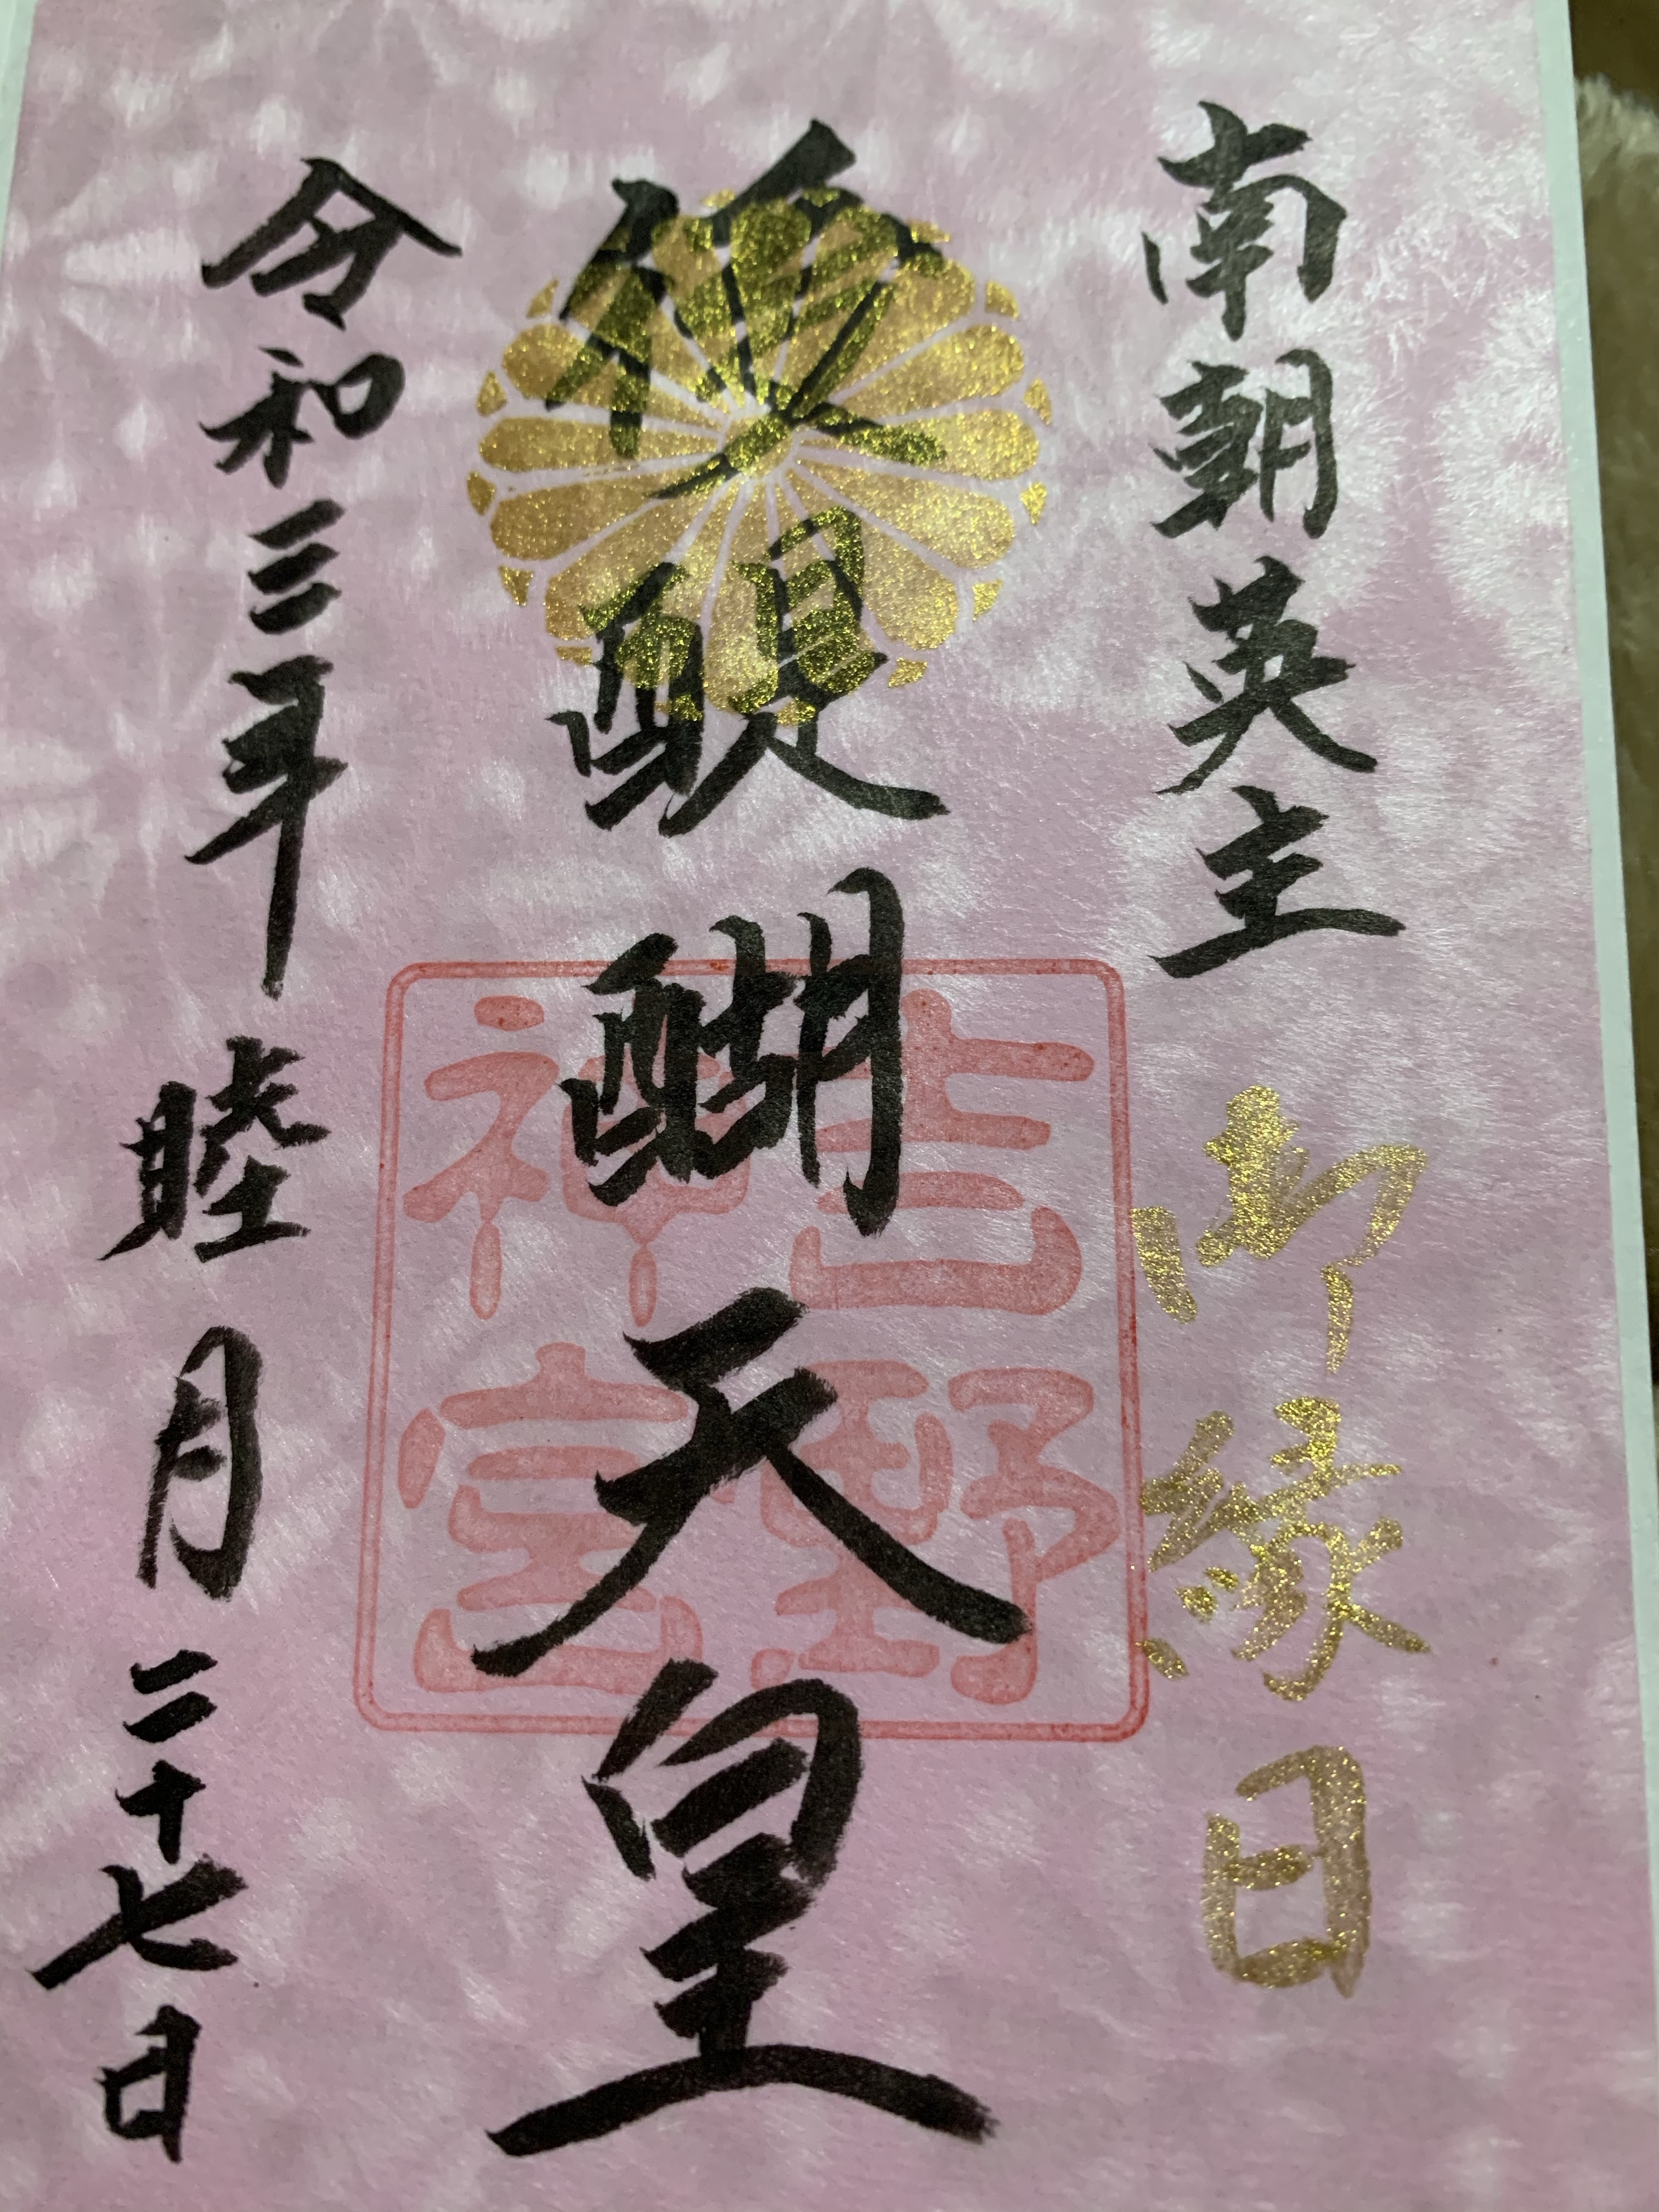 南朝英主
御縁日
後醍醐天皇
吉野
神宮
令和三年
睦月
二十七日